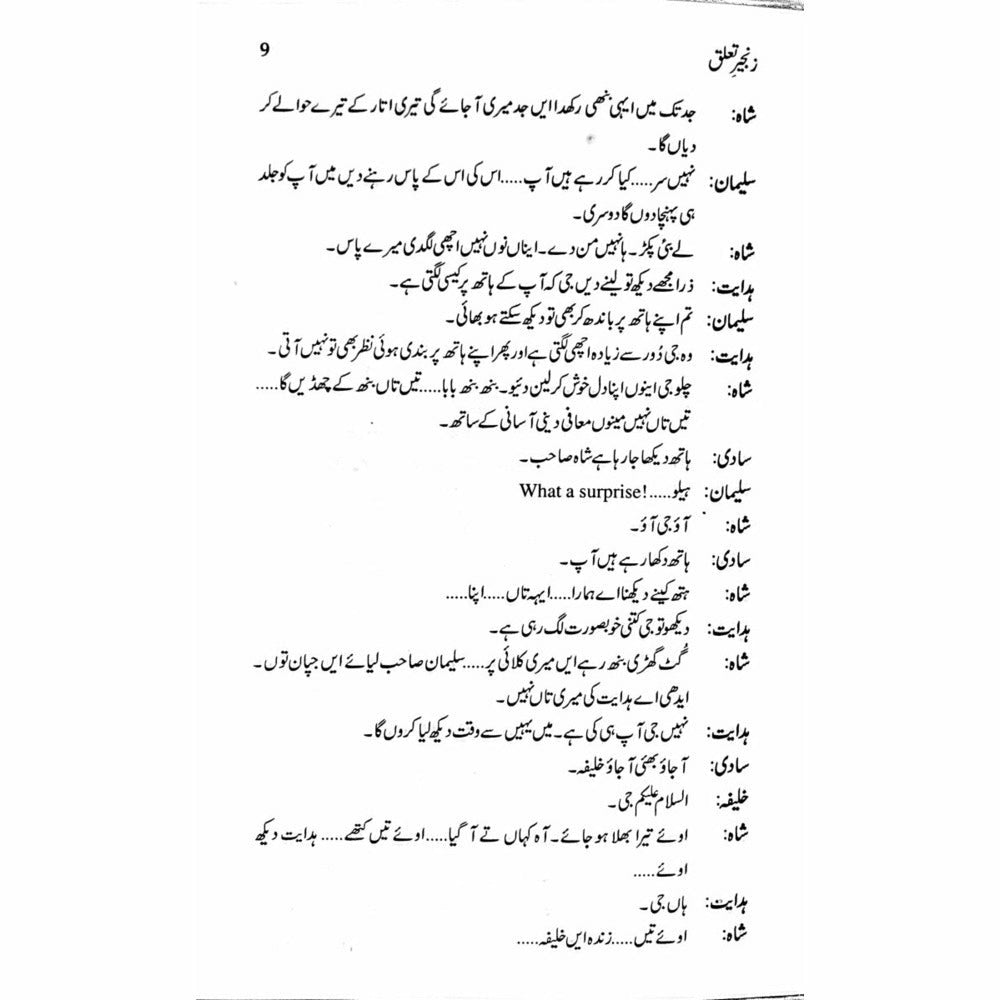 زنجیرِ تعلق 9
شاہ: جد تک میں ایہی بنھی رکھدا ایں جد میری آ جائے گی تیری اتار کے تیرے حوالے کر
دیاں گا۔
سلیمان: نہیں سر.....کیا کر رہے ہیں آپ.....اس کی اس کے پاس رہنے دیں میں آپ کو جلد
ہی پہنچا دوں گا دوسری۔
شاہ: لے بئی پکڑ۔ ہانہیں من دے۔ ایناں نوں نہیں اچھی لگدی میرے پاس۔
ہدایت: ذرا مجھے دیکھ تو لینے دیں جی کہ آپ کے ہاتھ پر کیسی لگتی ہے۔
سلیمان: تم اپنے ہاتھ پر باندھ کر بھی تو دیکھ سکتے ہو بھائی۔
ہدایت: وہ جی دُور سے زیادہ اچھی لگتی ہے اور پھر اپنے ہاتھ پر بندی ہوئی نظر بھی تو نہیں آتی۔
شاہ: چلو جی اینوں اپنا دل خوش کر لین دئیو۔ بنھ بنھ بابا.....تیں تاں بنھ کے چھڈیں گا.....
تیں تاں نہیں مینوں معافی دینی آسانی کے ساتھ۔
سادی: ہاتھ دیکھا جا رہا ہے شاہ صاحب۔
سلیمان: ہیلو.....What a surprise!
شاہ: آؤ جی آؤ۔
سادی: ہاتھ دکھا رہے ہیں آپ۔
شاہ: ہتھ کینے دیکھنا اے ہمارا.....ایہہ تاں.....اپنا.....
ہدایت: دیکھو تو جی کتنی خوبصورت لگ رہی ہے۔
شاہ: گُٹ گھڑی بنھ رہے ایں میری کلائی پر.....سلیمان صاحب لیائے ایں جپان توں۔
ایدھی اے ہدایت کی میری تاں نہیں۔
ہدایت: نہیں جی آپ ہی کی ہے۔ میں یہیں سے وقت دیکھ لیا کروں گا۔
سادی: آ جاؤ بھئی آ جاؤ خلیفہ۔
خلیفہ: السلام علیکم جی۔
شاہ: اوئے تیرا بھلا ہو جائے۔ آہ کہاں تے آ گیا.....اوئے تیں کتھے.....ہدایت دیکھ
اوئے.....
ہدایت: ہاں جی۔
شاہ: اوئے تیں.....زندہ ایں خلیفہ.....